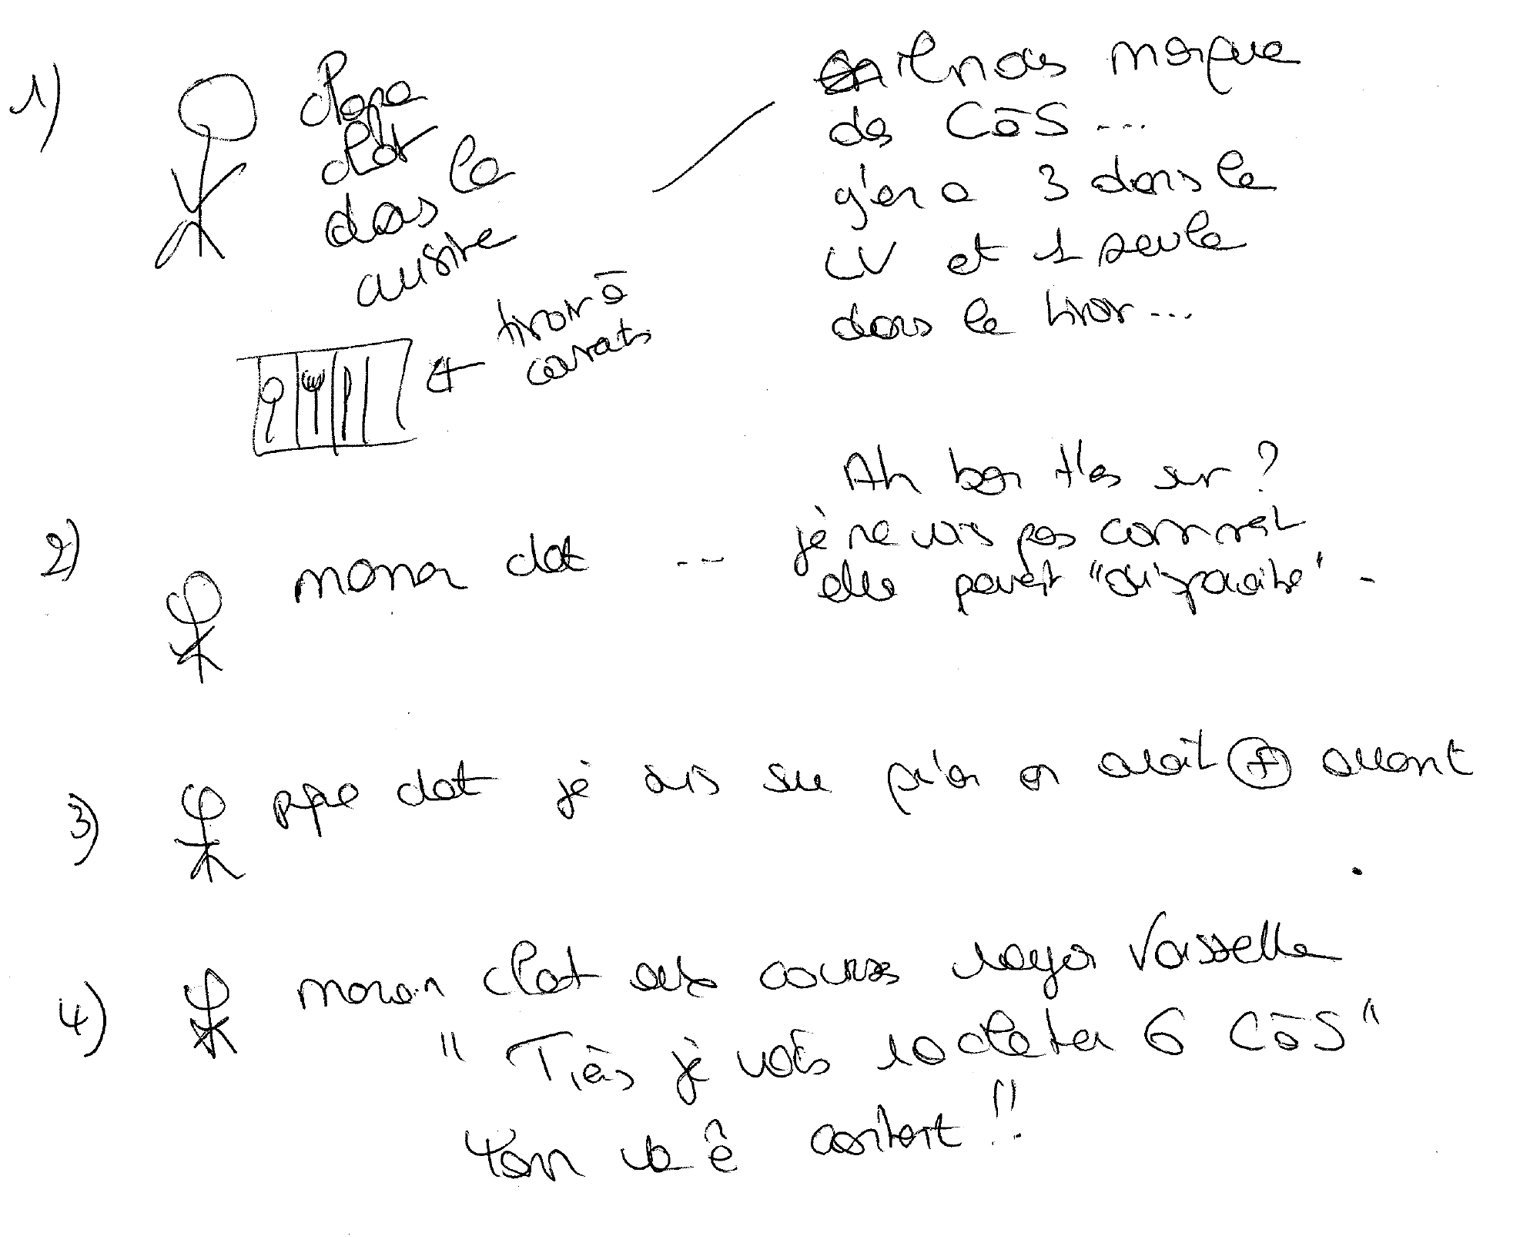 1)
Papa
clot
dans la
cuisine
il nous manque
des CàS ...
y'en a 3 dans le
LV et 1 seule
dans le tiroir ...
tiroir à
couverts
2)
maman clot ...
Ah bon t'es sur ?
je ne vois pas comment
elle pourrait "disparaitre" .
3)
papa clot je suis sur qu'on en avait + avant
4)
maman clot aux courses rayon vaisselle
" Tiens je vais racheter 6 CàS "
va ê content !!